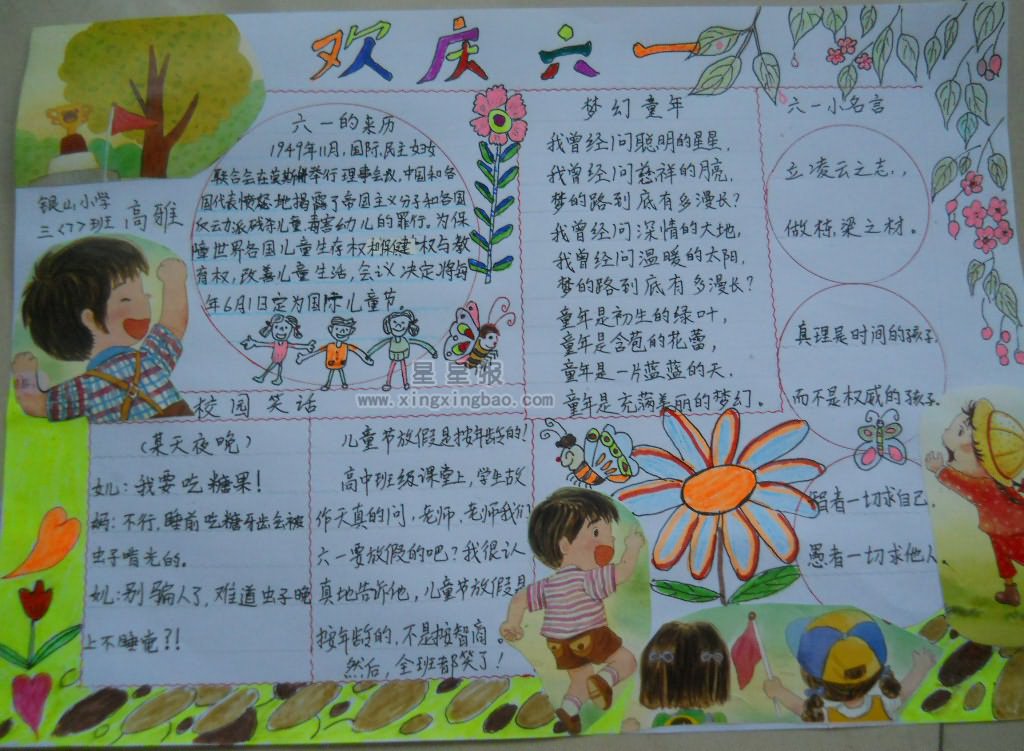 欢庆六一
银山小学
三<7>班 高雅
六一的来历
1949年11月,国际民主妇女
联合会在莫斯科举行理事会议,中国和各
国代表愤怒地揭露了帝国主义分子和各国
反动派残杀儿童、毒害幼儿的罪行。为保
障世界各国儿童生存权、保健权与教
育权,改善儿童生活,会议决定将每
年6月1日定为国际儿童节。
梦幻童年
我曾经问聪明的星星,
我曾经问慈祥的月亮,
梦的路到底有多漫长?
我曾经问深情的大地,
我曾经问温暖的太阳,
梦的路到底有多漫长?
童年是初生的绿叶,
童年是含苞的花蕾,
童年是一片蓝蓝的天,
童年是充满美丽的梦幻。
六一小名言
立凌云之志,
做栋梁之材。
真理是时间的孩子,
而不是权威的孩子。
智者一切求自己,
愚者一切求他人
星星报
www.xingxingbao.com
校园笑话
(某天夜晚)
女儿:我要吃糖果!
妈:不行,睡前吃糖牙齿会被
虫子啃光的。
女儿:别骗人了,难道虫子晚
上不睡觉?!
儿童节放假是按年龄的!
高中班级课堂上,学生故
作天真的问,老师,老师我们
六一要放假的吧?我很认
真地告诉他,儿童节放假是
按年龄的,不是按智商。
然后,全班都笑了!